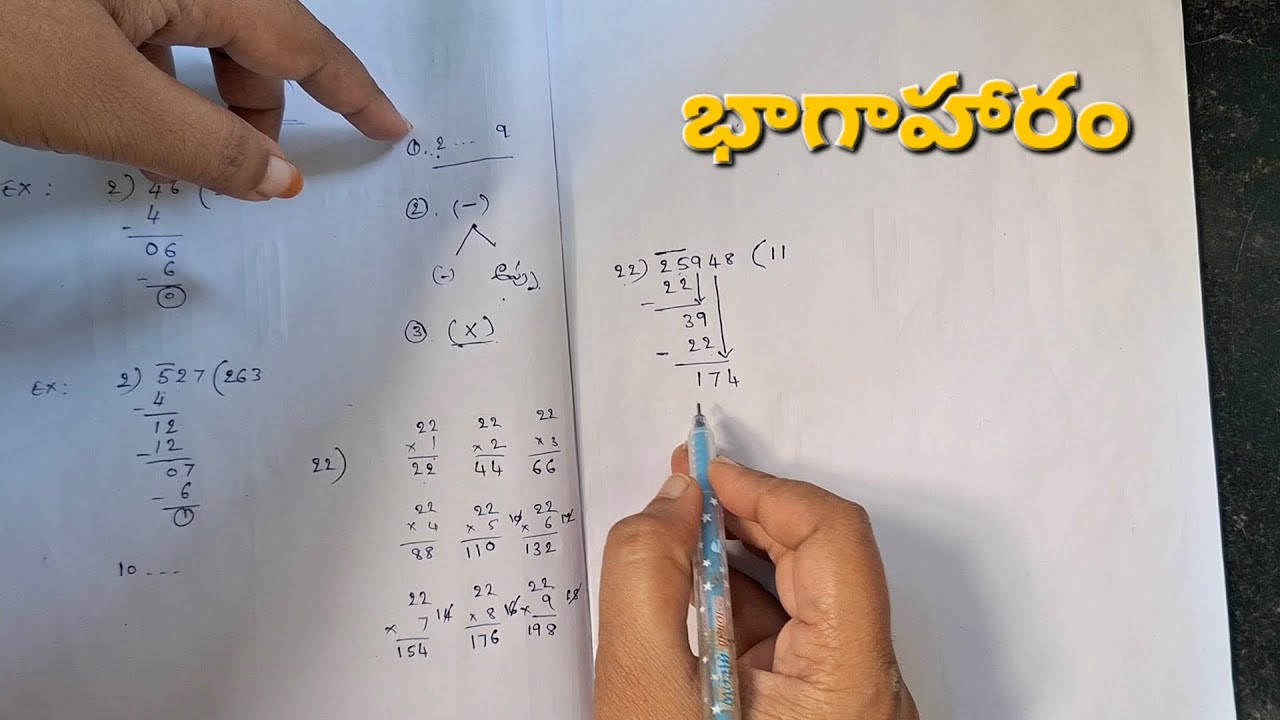 భాగాహారం
EX : 2) 46 (
- 4
06
- 6
0
EX : 2) 527 (263
- 4
12
- 12
07
- 6
1
10 ---
① . 2 ... 9
② . (-)
(-)
③ . (x)
22)
22 22 22
x 1 x 2 x 3
22 44 66
22 22 22
x 4 x 5 10 x 6 12
88 110 132
22 22 22
x 7 14 x 8 16 x 9 18
154 176 198
22) 25948 (11
- 22
39
- 22
174